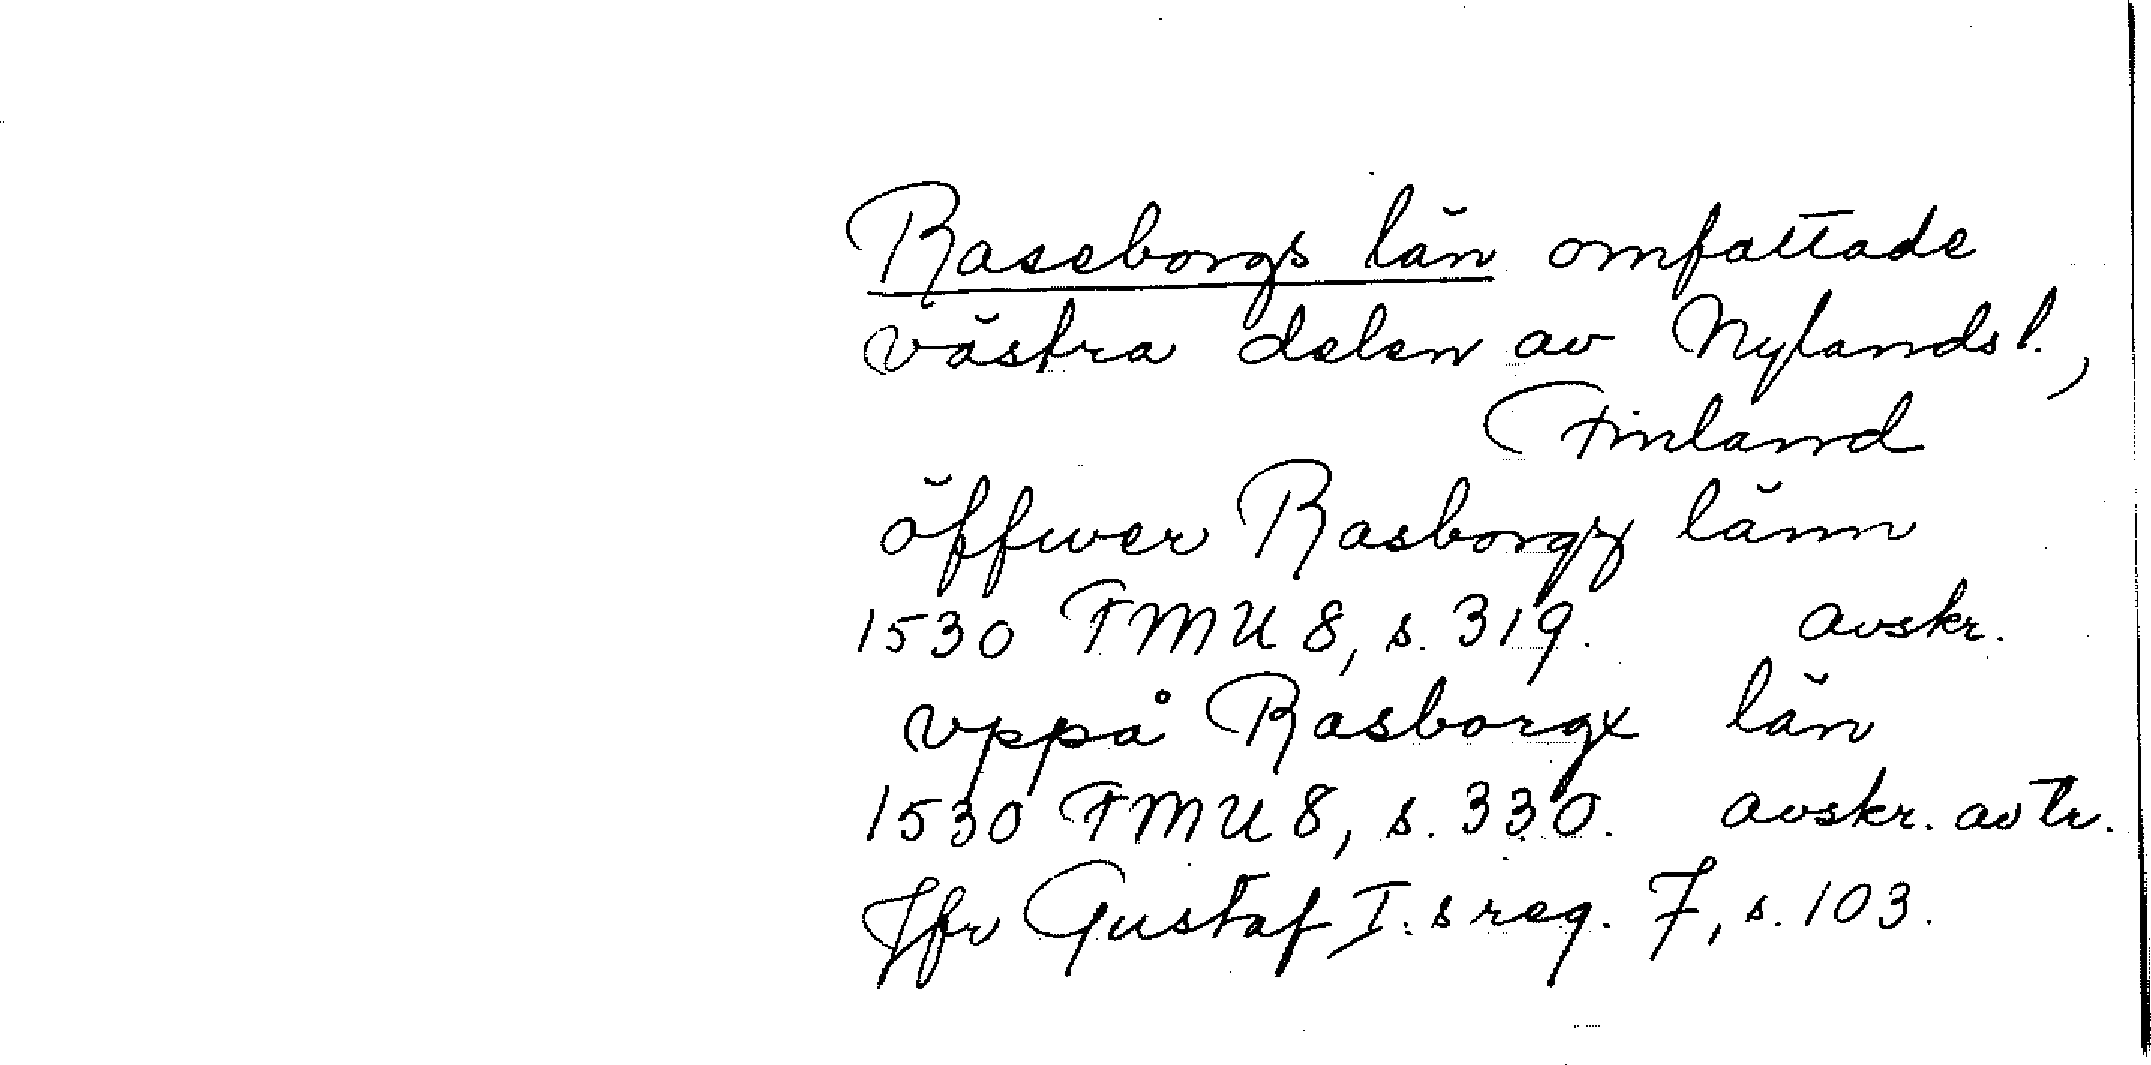 Raseborgs län omfattade
västra delen av Nylands l.,
Finland
öffwer Rasborgx länn
1530 FMU 8, s. 319. avskr.
vppå Rasborgx län
1530 FMU 8, s. 330. avskr. av tr.
Jfr Gustaf I.s reg. 7, s. 103.